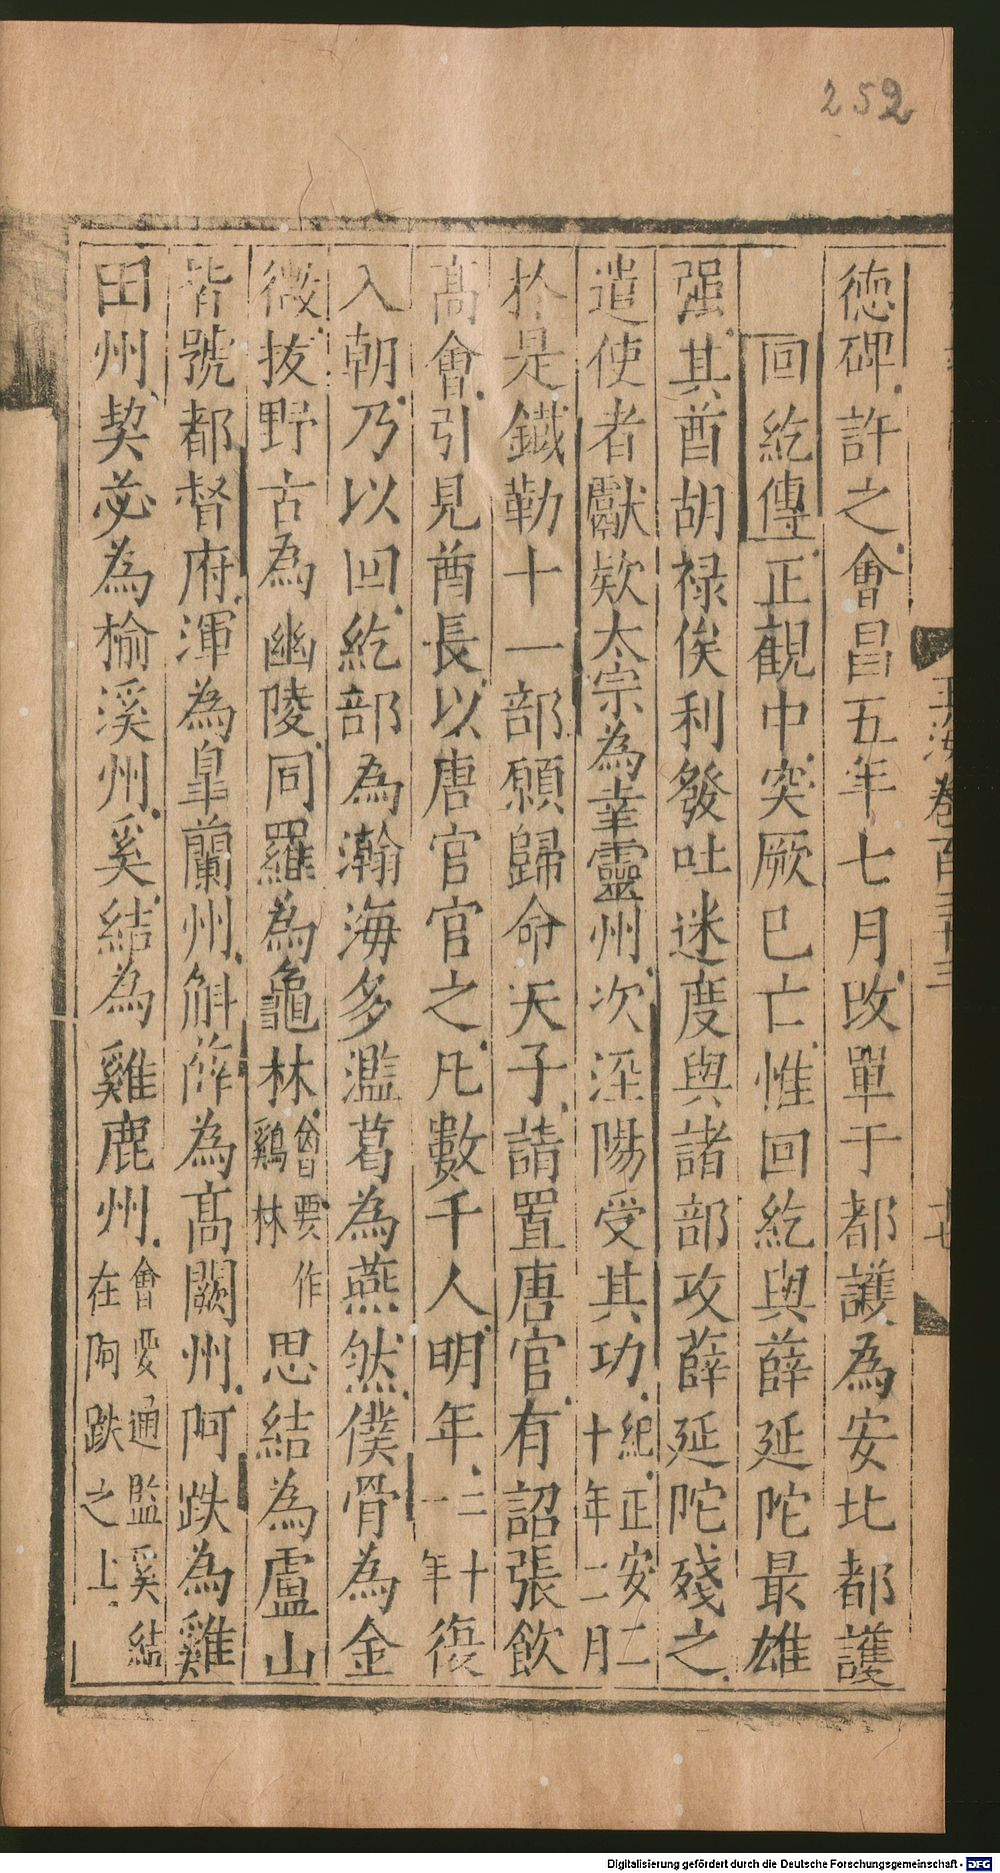 252
德碑許之會昌五年七月改單于都護為安北都護
回紇傳正觀中突厥已亡惟回紇與薛延陀最雄
强其酋胡禄俟利發吐迷度與諸部攻薛延陀殘之
遣使者獻欵太宗為幸靈州次涇陽受其功紀正安二十年二月
於是鐵勒十一部願歸命天子請置唐官有詔張飲
髙會引見酋長以唐官官之凡數千人明年二十一年復
入朝乃以回紇部為瀚海多濫葛為燕然僕骨為金
微拔野古為幽陵同羅為龜林會要作鷄林思結為盧山
皆號都督府渾為臯蘭州斛薛為髙闕州阿跌為雞
田州契苾為榆溪州奚結為雞鹿州會要通監奚結在阿跌之上
玉海卷百三十三
十七
Digitalisierung gefördert durch die Deutsche Forschungsgemeinschaft - DFG